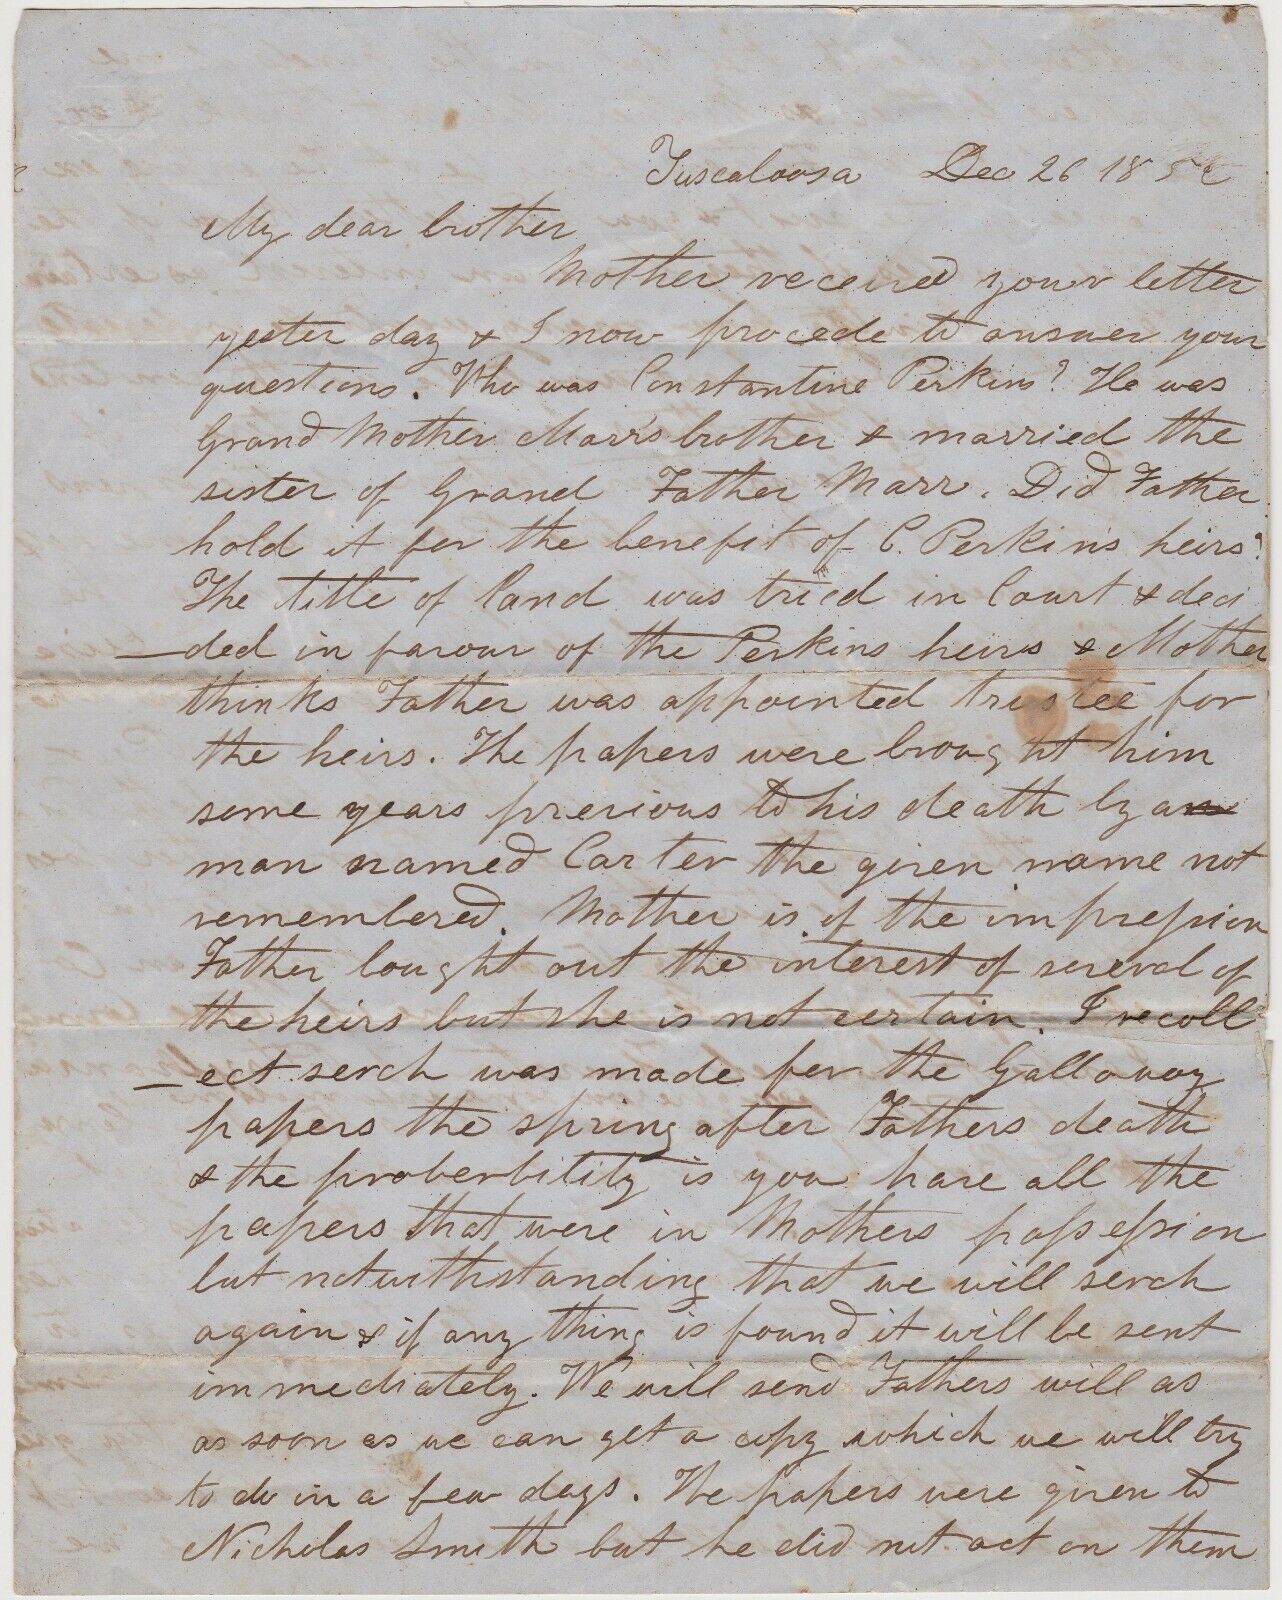 Tuscaloosa Dec 26 185
My dear brother
Mother received your letter
yester day & I now procede to answer your
questions. Who was Constantine Perkins? He was
Grand Mother Marrs brother & married the
sister of Grand Father Marr. Did Father
hold it for the benefit of C. Perkins heirs?
The title of land was tried in Court & deci
-ded in favour of the Perkins heirs & Mother
thinks Father was appointed trustee for
the heirs. The papers were brought him
some years previous to his death by a
man named Carter the given name not
remembered. Mother is of the impression
Father bought out the interest of several of
the heirs but she is not certain. I recoll
-ect serch was made for the Galloway
papers the spring after Fathers death
& the proberbility is you have all the
papers that were in Mothers possession
but notwithstanding that we will serch
again & if any thing is found it will be sent
immediately. We will send Fathers will as
as soon as we can get a copy which we will try
to do in a few days. The papers were given to
Nicholas Smith but he did not act on them